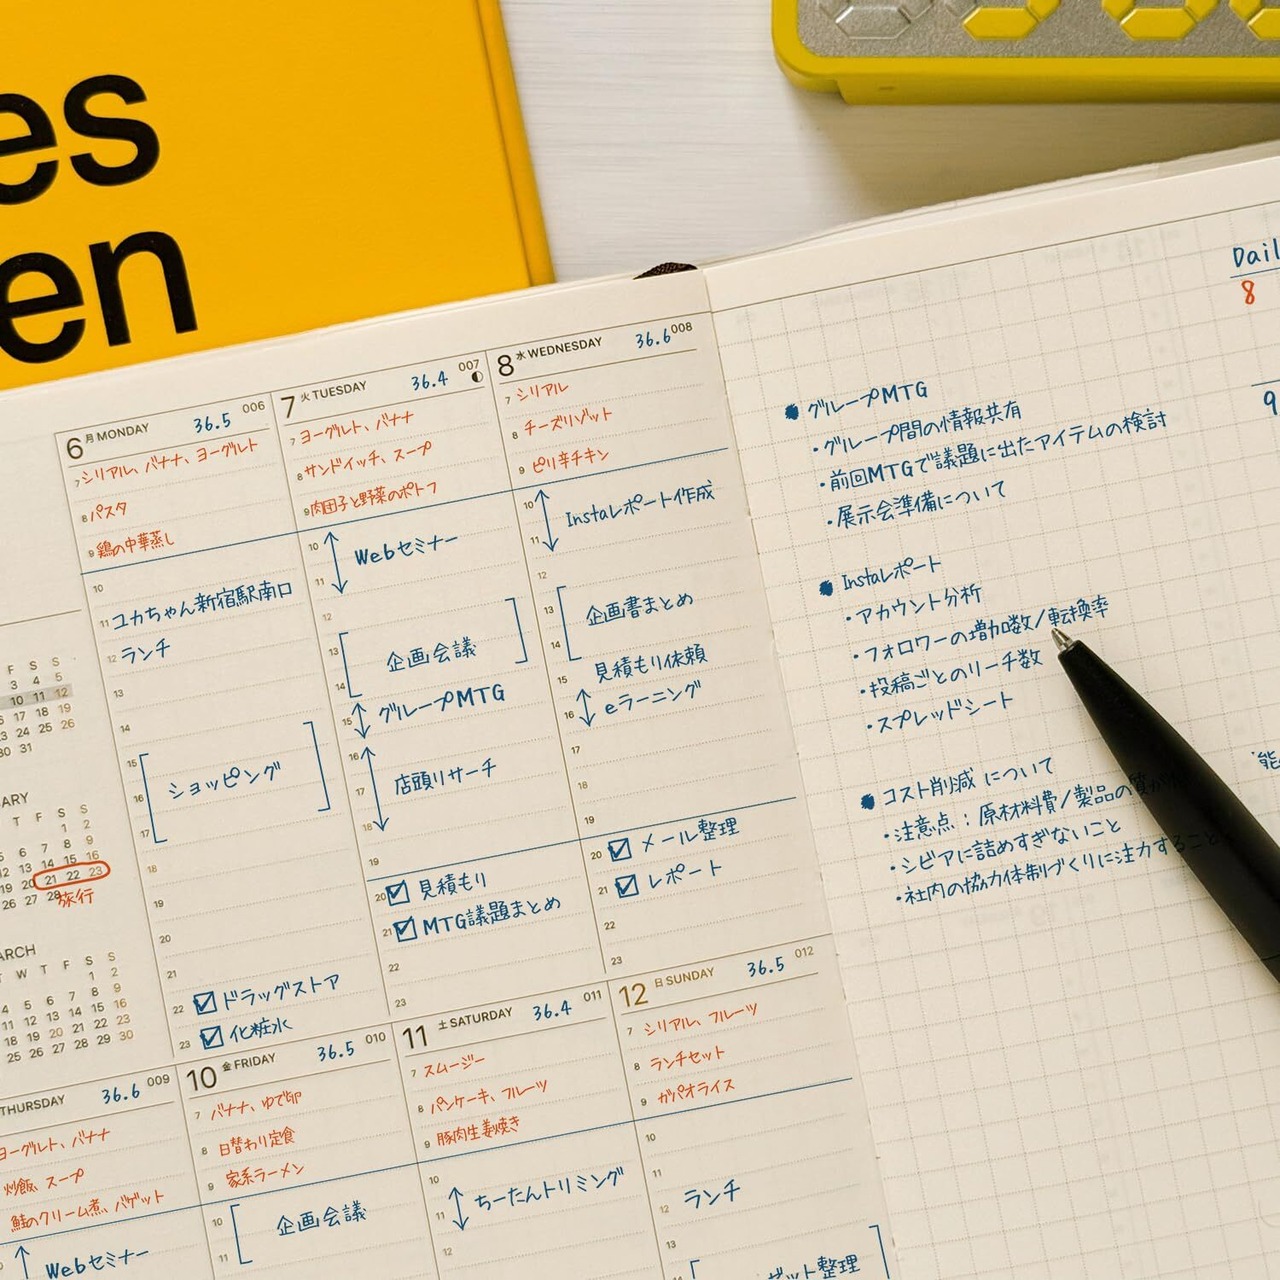 es
en
6 月 MONDAY 36.5 006
7 シリアル、バナナ、ヨーグルト
8 パスタ
9 鶏の中華蒸し
10
11 ユカちゃん新宿駅南口
12 ランチ
13
14
15
16 ショッピング
17
18
19
20
21
22 ☑ ドラッグストア
23 ☑ 化粧水
7 火 TUESDAY 36.4 007
7 ヨーグルト、バナナ
8 サンドイッチ、スープ
9 肉団子と野菜のポトフ
10 Webセミナー
11
12
13 企画会議
14
15 グループMTG
16
17 店頭リサーチ
18
19
20 ☑ 見積もり
21 ☑ MTG議題まとめ
22
23
8 水 WEDNESDAY 36.6 008
7 シリアル
8 チーズリゾット
9 ピリ辛チキン
10 Instaレポート作成
11
12
13 企画書まとめ
14
15 見積もり依頼
16 eラーニング
17
18
19
20 ☑ メール整理
21 ☑ レポート
22
23
F S S
3 4 5
10 11 12
17 18 19
23 24 25 26
30 31
ARY
T F S S
1 2
5 6 7 8 9
12 13 14 15 16
19 20 21 22 23
26 27 28
旅行
ARCH
T W T F S S
1 2
4 5 6 7 8 9
11 12 13 14 15 16
18 19 20 21 22 23
25 26 27 28 29 30
THURSDAY 36.6 009
ヨーグルト、バナナ
炒飯、スープ
鮭のクリーム煮、バゲット
Webセミナー
10 金 FRIDAY 36.5 010
7 バナナ、ゆで卵
8 日替わり定食
9 家系ラーメン
10 企画会議
11
11 土 SATURDAY 36.4 011
7 スムージー
8 パンケーキ、フルーツ
9 豚肉生姜焼き
10
11 ちーたんトリミング
12
12 日 SUNDAY 36.5 012
7 シリアル、フルーツ
8 ランチセット
9 ガパオライス
10
11
12 ランチ
13
整理
Dail
8
9
● グループMTG
・グループ間の情報共有
・前回MTGで議題に出たアイテムの検討
・展示会準備について
● Instaレポート
・アカウント分析
・フォロワーの増加数/転換率
・投稿ごとのリーチ数
・スプレッドシート
● コスト削減について
・注意点：原材料費/製品の質が
・シビアに詰めすぎないこと
・社内の協力体制づくりに注力すること